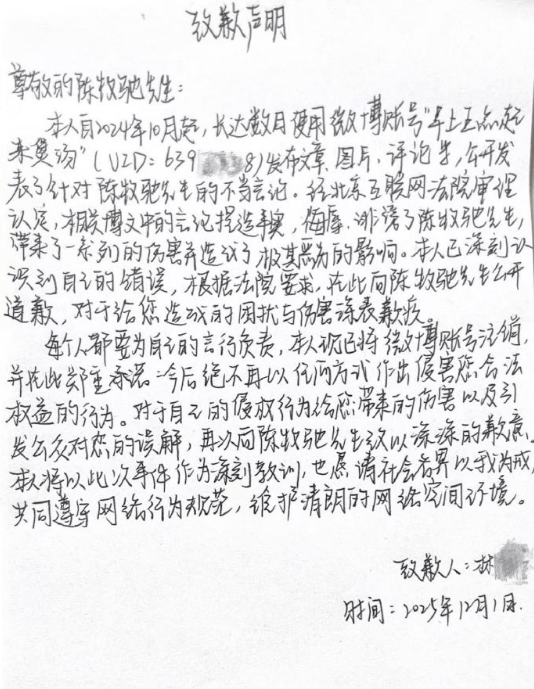 致歉声明
尊敬的陈牧驰先生：
本人自2024年10月起，长达数日使用微博账号"早上五点起
来煲汤"（UID：639 8）发布文章、图片、评论等，公开发
表了针对陈牧驰先生的不当言论。经北京互联网法院审理
认定，相关博文中的言论捏造事实，侮辱、诽谤了陈牧驰先生，
带来了一系列的伤害并造成了极其恶劣的影响。本人已深刻认
识到自己的错误，根据法院要求，在此向陈牧驰先生公开
道歉，对于给您造成的困扰与伤害深表歉疚。
每个人都要为自己的言行负责，本人现已将微博账号注销，
并在此郑重承诺：今后绝不再以任何方式作出侵害您合法
权益的行为。对于自己的侵权行为给您带来的伤害以及引
发公众对您的误解，再次向陈牧驰先生致以深深的歉意。
本人将以此次事件作为深刻教训，也恳请社会各界以我为戒，
共同遵守网络行为规范，维护清朗的网络空间环境。
致歉人：林
时间：2025年12月1日.